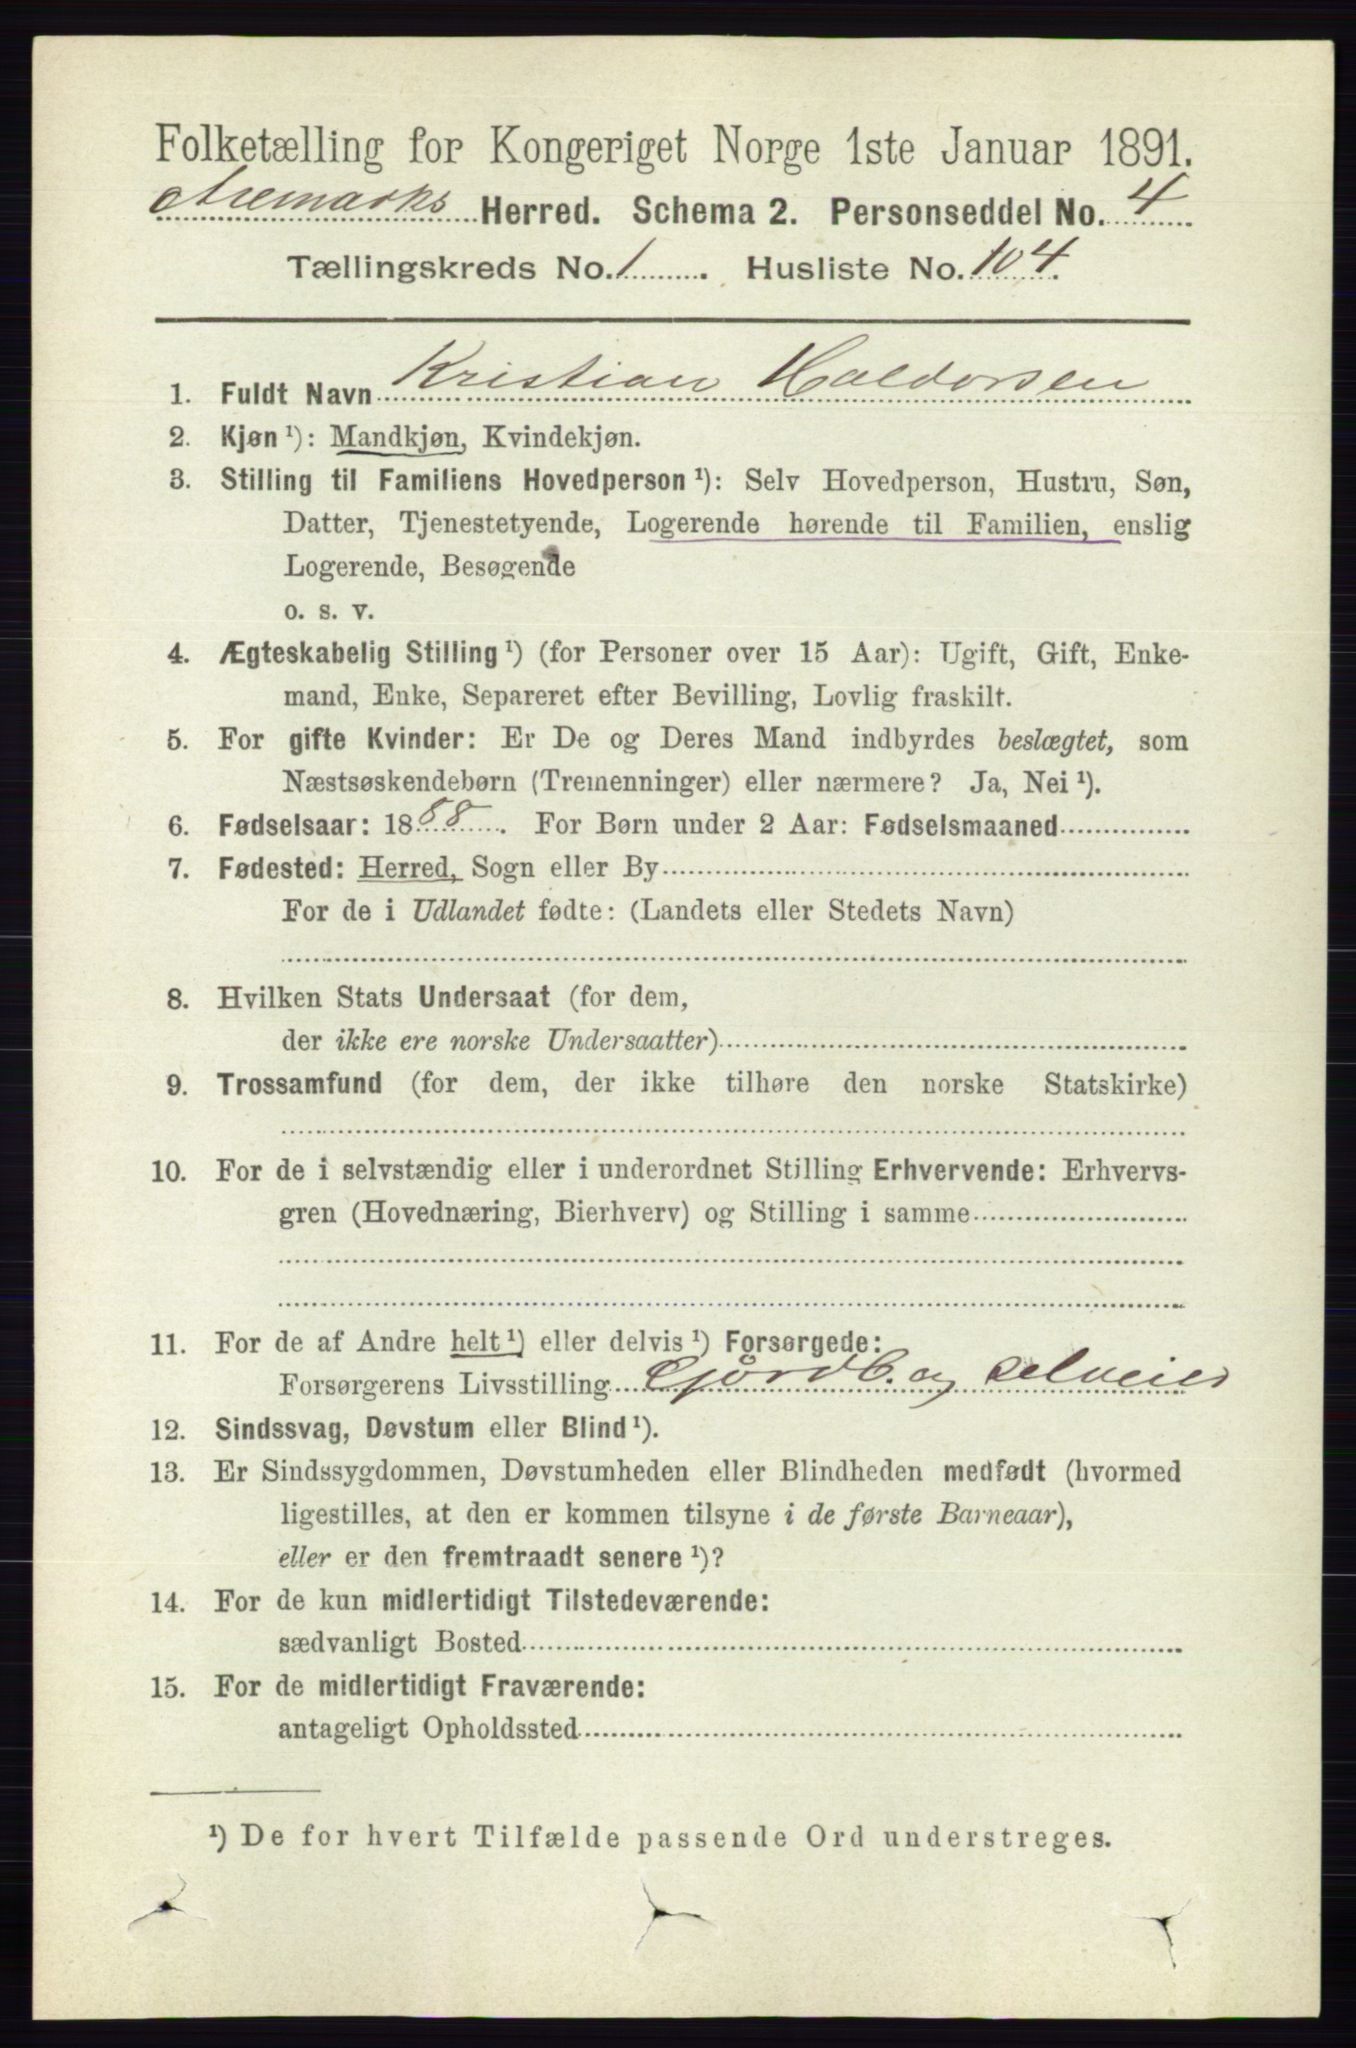 Folketælling for Kongeriget Norge 1ste Januar 1891.
Aremarks Herred. Schema 2. Personseddel No. 4
Tællingskreds No. 1. Husliste No. 104.
1. Fuldt Navn Kristian Haldorsen
2. Kjøn ¹): Mandkjøn, Kvindekjøn.
3. Stilling til Familiens Hovedperson ¹): Selv Hovedperson, Hustru, Søn,
Datter, Tjenestetyende, Logerende hørende til Familien, enslig
Logerende, Besøgende
o. s. v.
4. Ægteskabelig Stilling ¹) (for Personer over 15 Aar): Ugift, Gift, Enke-
mand, Enke, Separeret efter Bevilling, Lovlig fraskilt.
5. For gifte Kvinder: Er De og Deres Mand indbyrdes beslægtet, som
Næstsøskendebørn (Tremenninger) eller nærmere? Ja, Nei ¹).
6. Fødselsaar: 1888. For Børn under 2 Aar: Fødselsmaaned
7. Fødested: Herred, Sogn eller By
For de i Udlandet fødte: (Landets eller Stedets Navn)
8. Hvilken Stats Undersaat (for dem,
der ikke ere norske Undersaatter)
9. Trossamfund (for dem, der ikke tilhøre den norske Statskirke)
10. For de i selvstændig eller i underordnet Stilling Erhvervende: Erhvervs-
gren (Hovednæring, Bierhverv) og Stilling i samme
11. For de af Andre helt ¹) eller delvis ¹) Forsørgede:
Forsørgerens Livsstilling Gjordb. og Selveier
12. Sindssvag, Døvstum eller Blind ¹).
13. Er Sindssygdommen, Døvstumheden eller Blindheden medfødt (hvormed
ligestilles, at den er kommen tilsyne i de første Barneaar),
eller er den fremtraadt senere ¹)?
14. For de kun midlertidigt Tilstedeværende:
sædvanligt Bosted
15. For de midlertidigt Fraværende:
antageligt Opholdssted
¹) De for hvert Tilfælde passende Ord understreges.